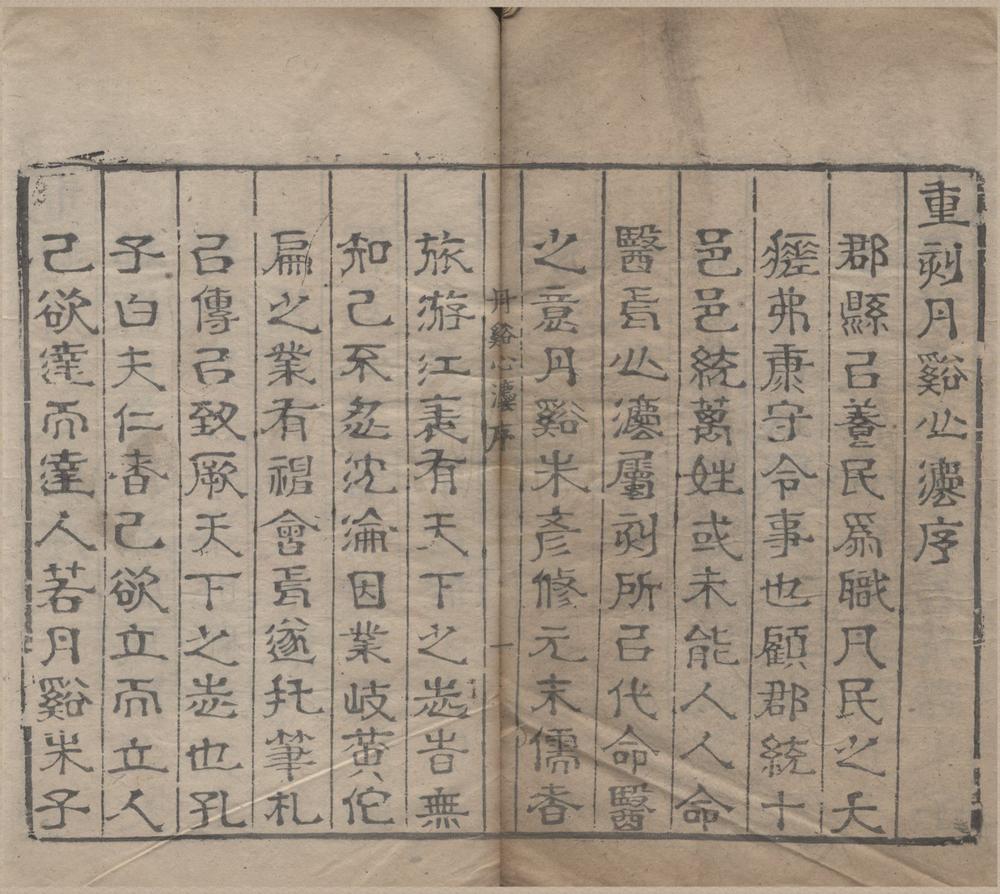 重刻丹谿心灋序
郡縣㠯養民爲職凡民之夭
瘥弗康守令事也顧郡統十
邑邑統萬姓或未能人人命
醫焉心灋屬刻所㠯代命醫
之意丹谿朱彥修元末儒者
丹谿心灋序 一
旅游江表有天下之志昔無
知己不忍沈淪因業岐黄佗
扁之業有褐會焉遂托筆札
㠯傳㠯致厥天下之志也孔
子曰夫仁者己欲立而立人
己欲達而達人若丹谿朱子